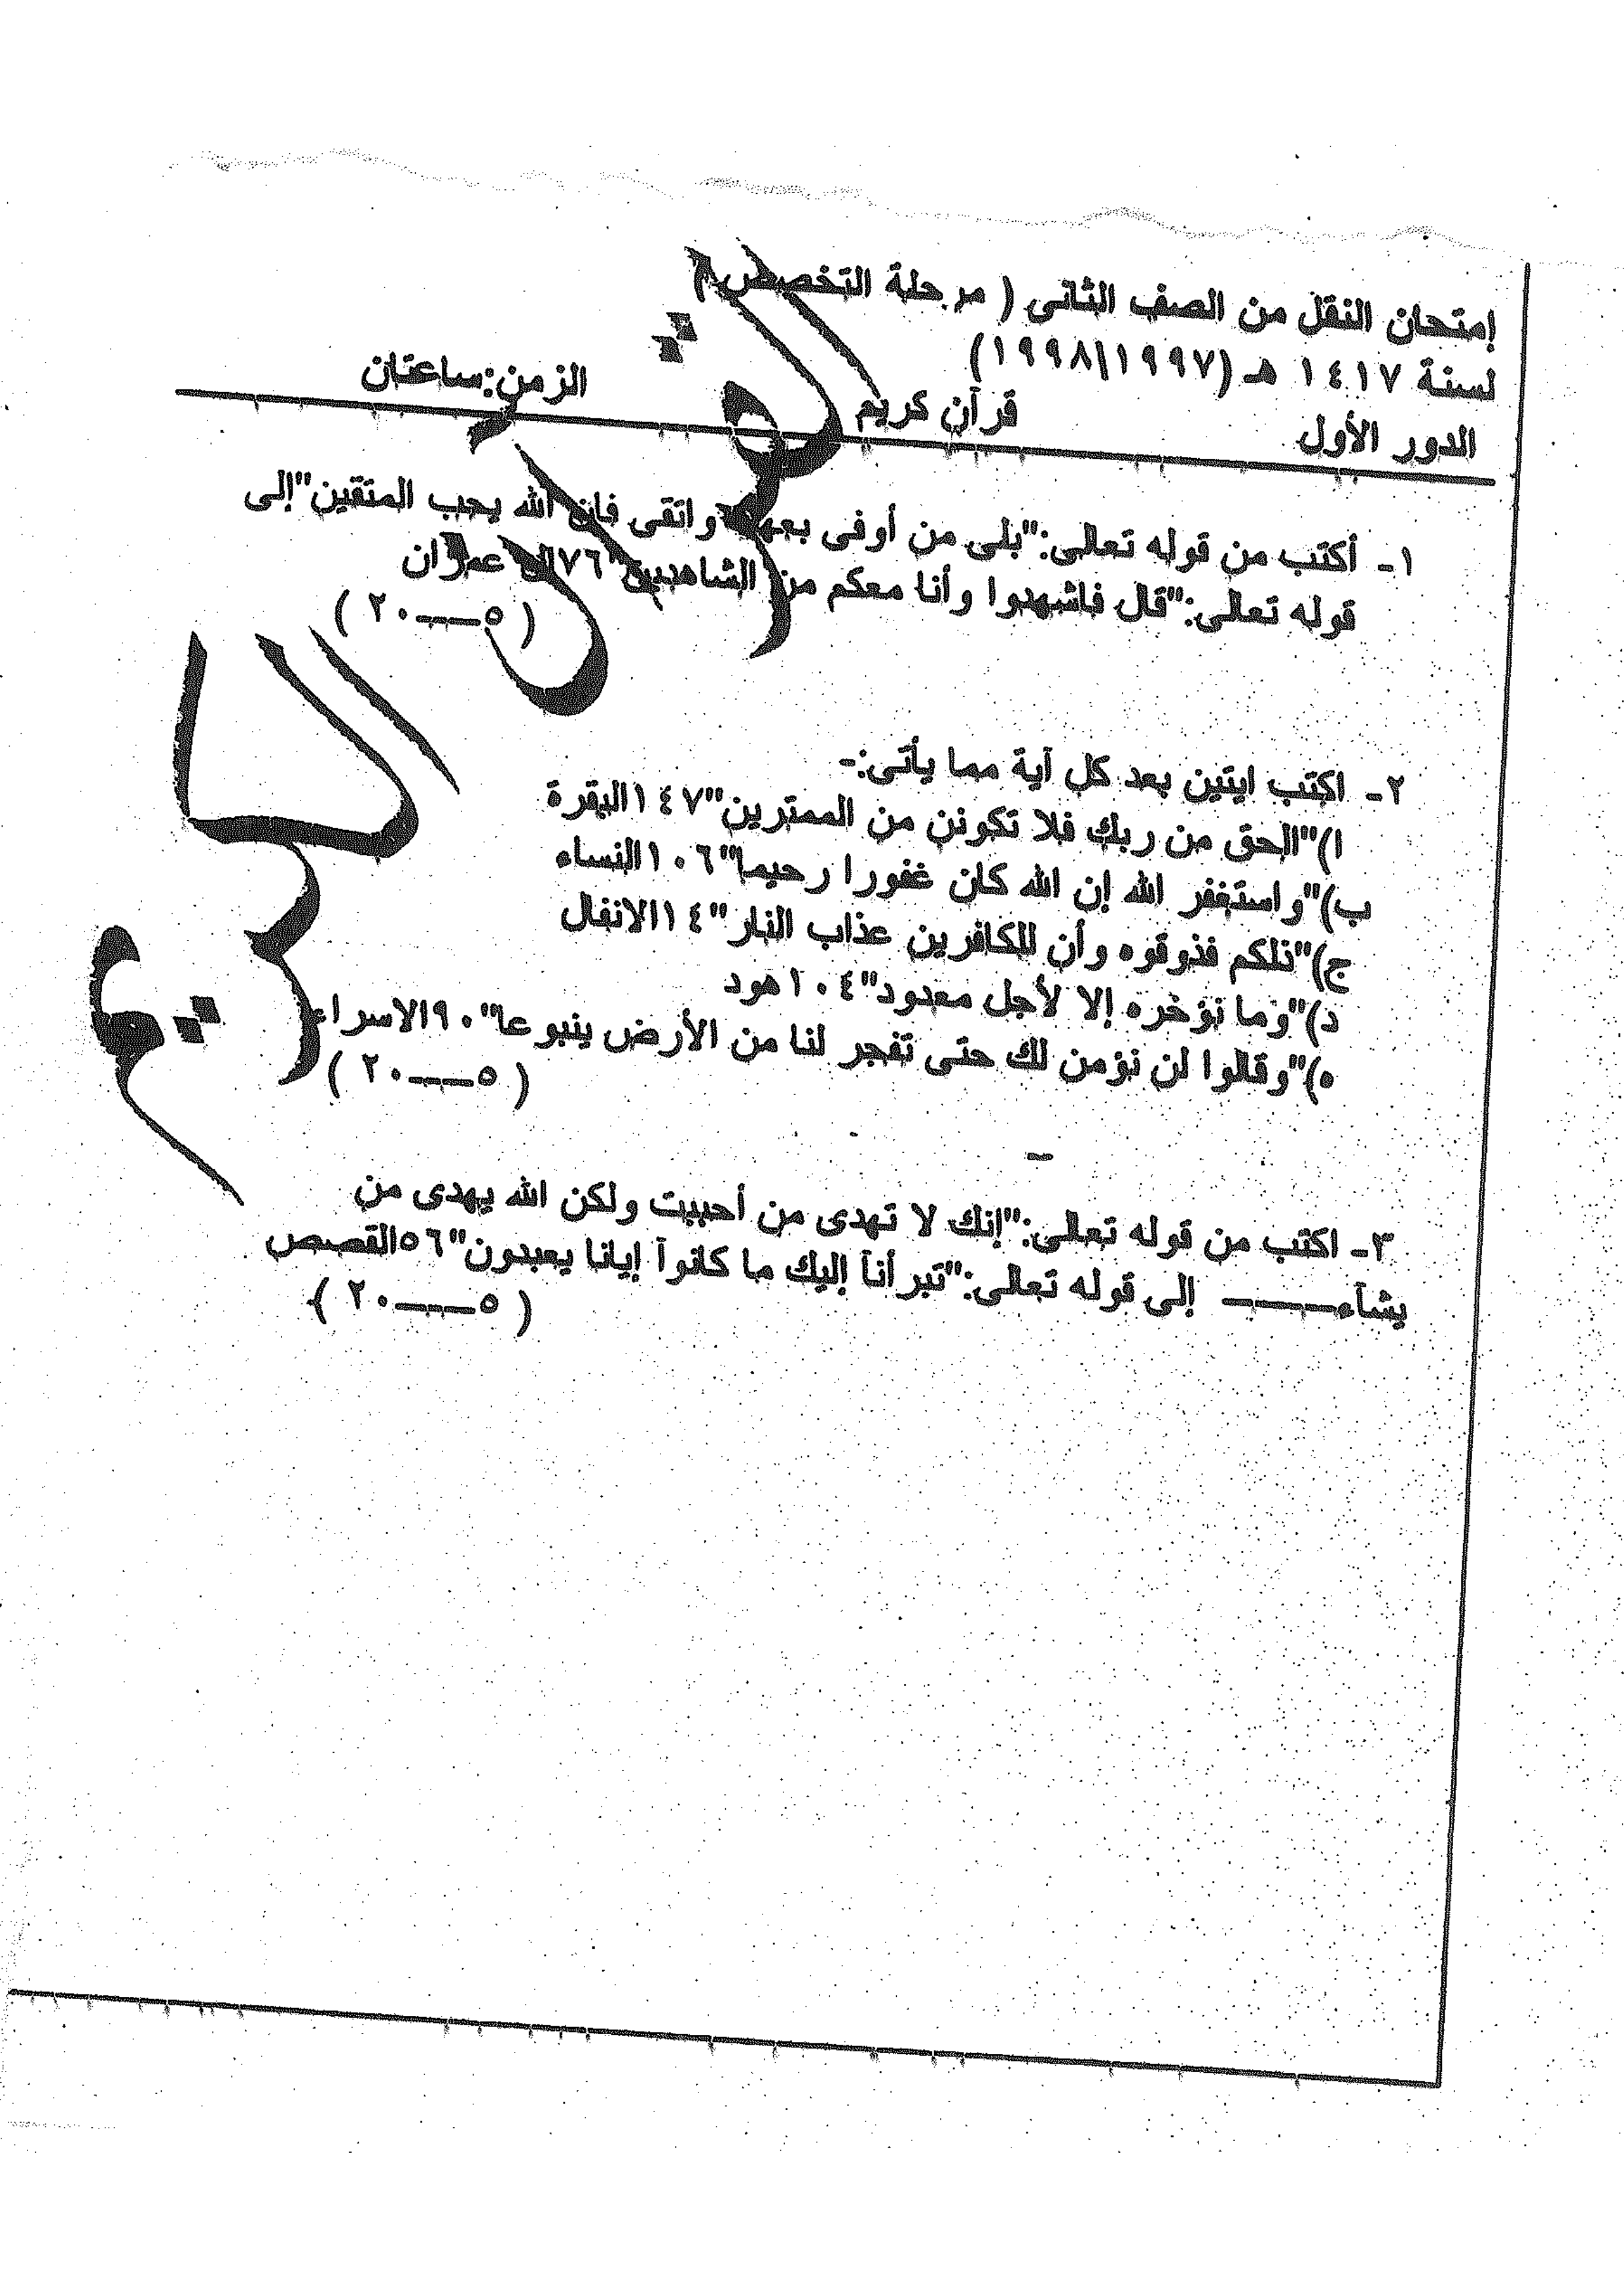 إمتحان النقل من الصف الثانى ( مرحلة التخصص )
لسنة ١٤١٧ هـ (١٩٩٧\١٩٩٨)
الدور الأول قرآن كريم الزمن:ساعتان
القرآن الكريم
١- أكتب من قوله تعالى:"بلى من أوفى بعهده واتقى فإن الله يحب المتقين"إلى
قوله تعالى:"قال فاشهدوا وأنا معكم من الشاهدين"٧٦ال عمران
( ٥ــــ٢٠ )
٢- اكتب ايتين بعد كل آية مما يأتى:-
ا)"الحق من ربك فلا تكونن من الممترين"١٤٧البقرة
ب)"واستغفر الله إن الله كان غفورا رحيما"١٠٦النساء
ج)"ذلكم فذوقوه وأن للكافرين عذاب النار"١٤الانفال
د)"وما نؤخره إلا لأجل معدود"١٠٤هود
ه)"وقالوا لن نؤمن لك حتى تفجر لنا من الأرض ينبوعا"٩٠الاسراء
( ٥ــــ٢٠ )
٣- اكتب من قوله تعالى:"إنك لا تهدى من أحببت ولكن الله يهدى من
يشآءــــــ إلى قوله تعالى:"تبرأنآ إليك ما كانوآ إيانا يعبدون"٥٦القصص
( ٥ــــ٢٠ )